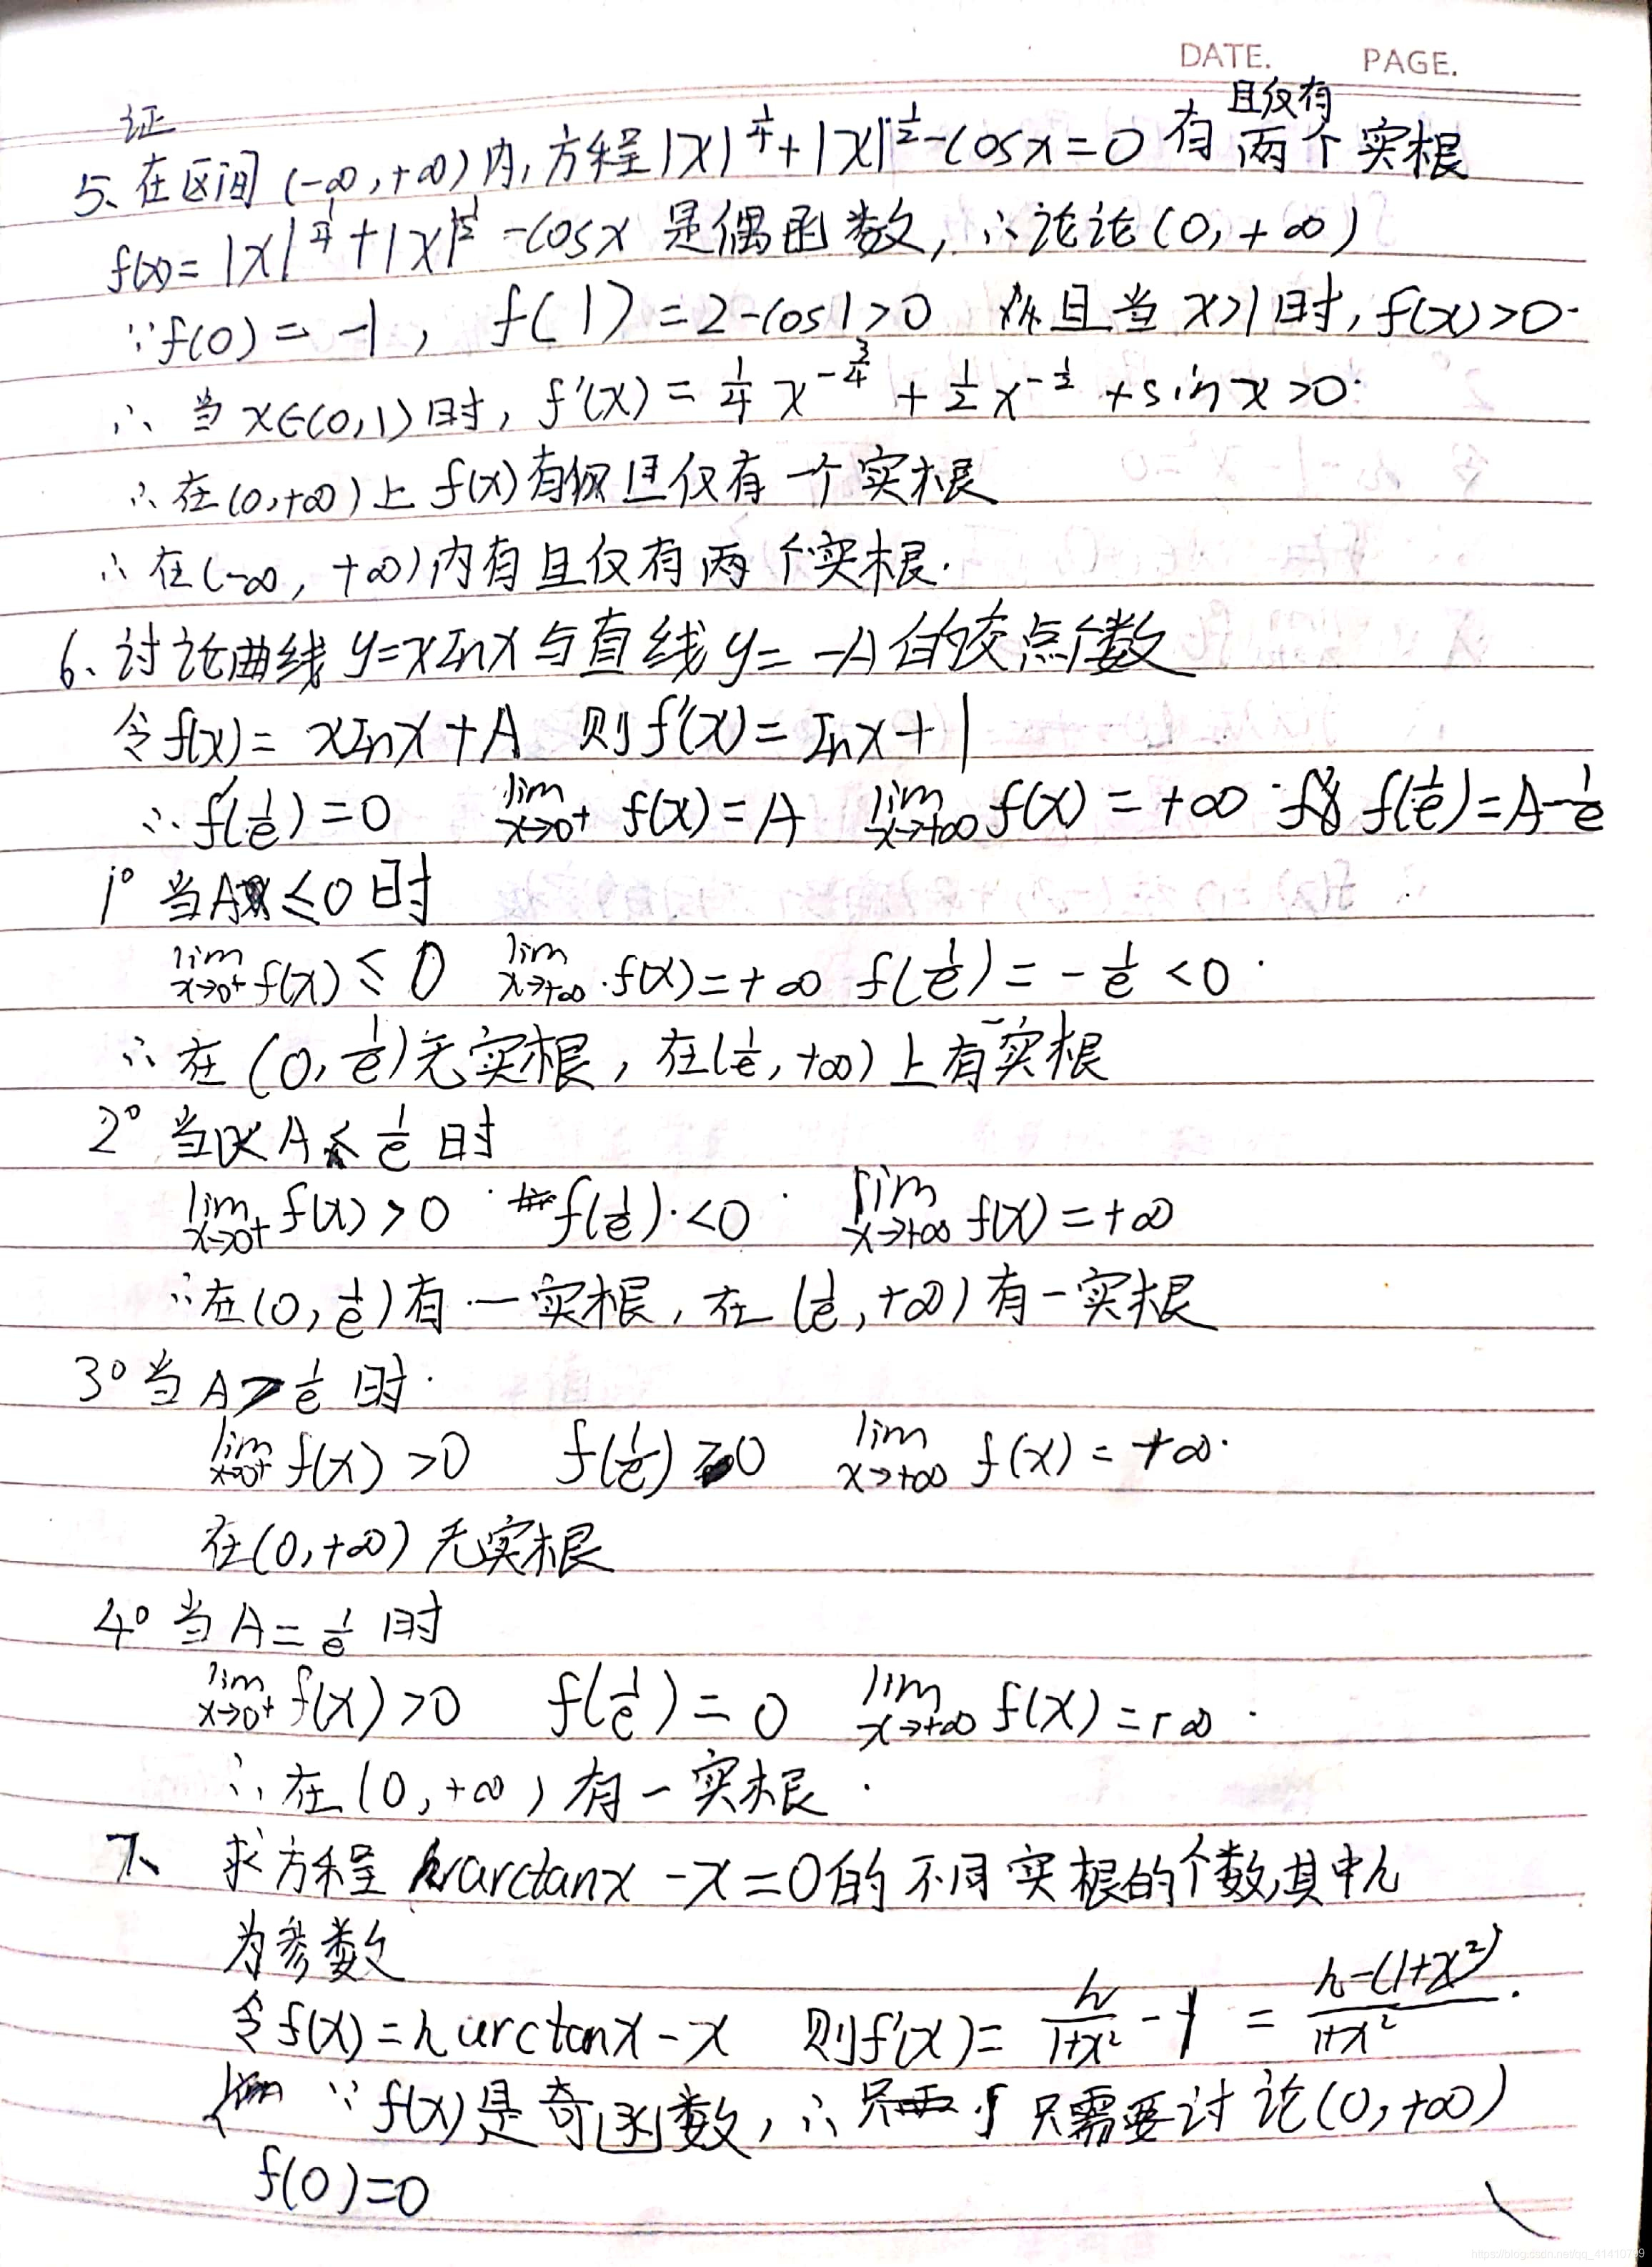 DATE. PAGE.
证 且仅有
5、在区间(-∞,+∞)内,方程|x|^{1/4}+|x|^{1/2}-cosx=0有两个实根
f(x)=|x|^{1/4}+|x|^{1/2}-cosx是偶函数,∴论论(0,+∞)
∵f(0)=-1, f(1)=2-cos1>0 且当x>1时,f(x)>0.
∴当x∈(0,1)时,f'(x)=1/4 x^{-3/4}+1/2 x^{-1/2}+sinx>0.
∴在(0,+∞)上f(x)有且仅有一个实根
∴在(-∞,+∞)内有且仅有两个实根.
6、讨论曲线y=xInx与直线y=-A的交点个数
令f(x)=xInx+A 则f'(x)=Inx+1
∴f'(1/e)=0 lim x→0+ f(x)=A lim x→+∞ f(x)=+∞ f(1/e)=A-1/e
1° 当A≤0时
lim x→0+ f(x)≤0 lim x→+∞ f(x)=+∞ f(1/e)=-1/e<0.
∴在(0,1/e)无实根,在(1/e,+∞)上有一实根
2° 当0<A<1/e时
lim x→0+ f(x)>0 f(1/e)<0 lim x→+∞ f(x)=+∞
∴在(0,1/e)有一实根,在(1/e,+∞)有一实根
3° 当A>1/e时.
lim x→0+ f(x)>0 f(1/e)>0 lim x→+∞ f(x)=+∞.
在(0,+∞)无实根
4° 当A=1/e时
lim x→0+ f(x)>0 f(1/e)=0 lim x→+∞ f(x)=+∞.
∴在(0,+∞)有一实根.
7、求方程karctanx-x=0的不同实根的个数,其中k
为参数
令f(x)=karctanx-x 则f'(x)=k/(1+x²)-1=(k-(1+x²))/(1+x²).
∵f(x)是奇函数,∴只需要讨论(0,+∞)
f(0)=0